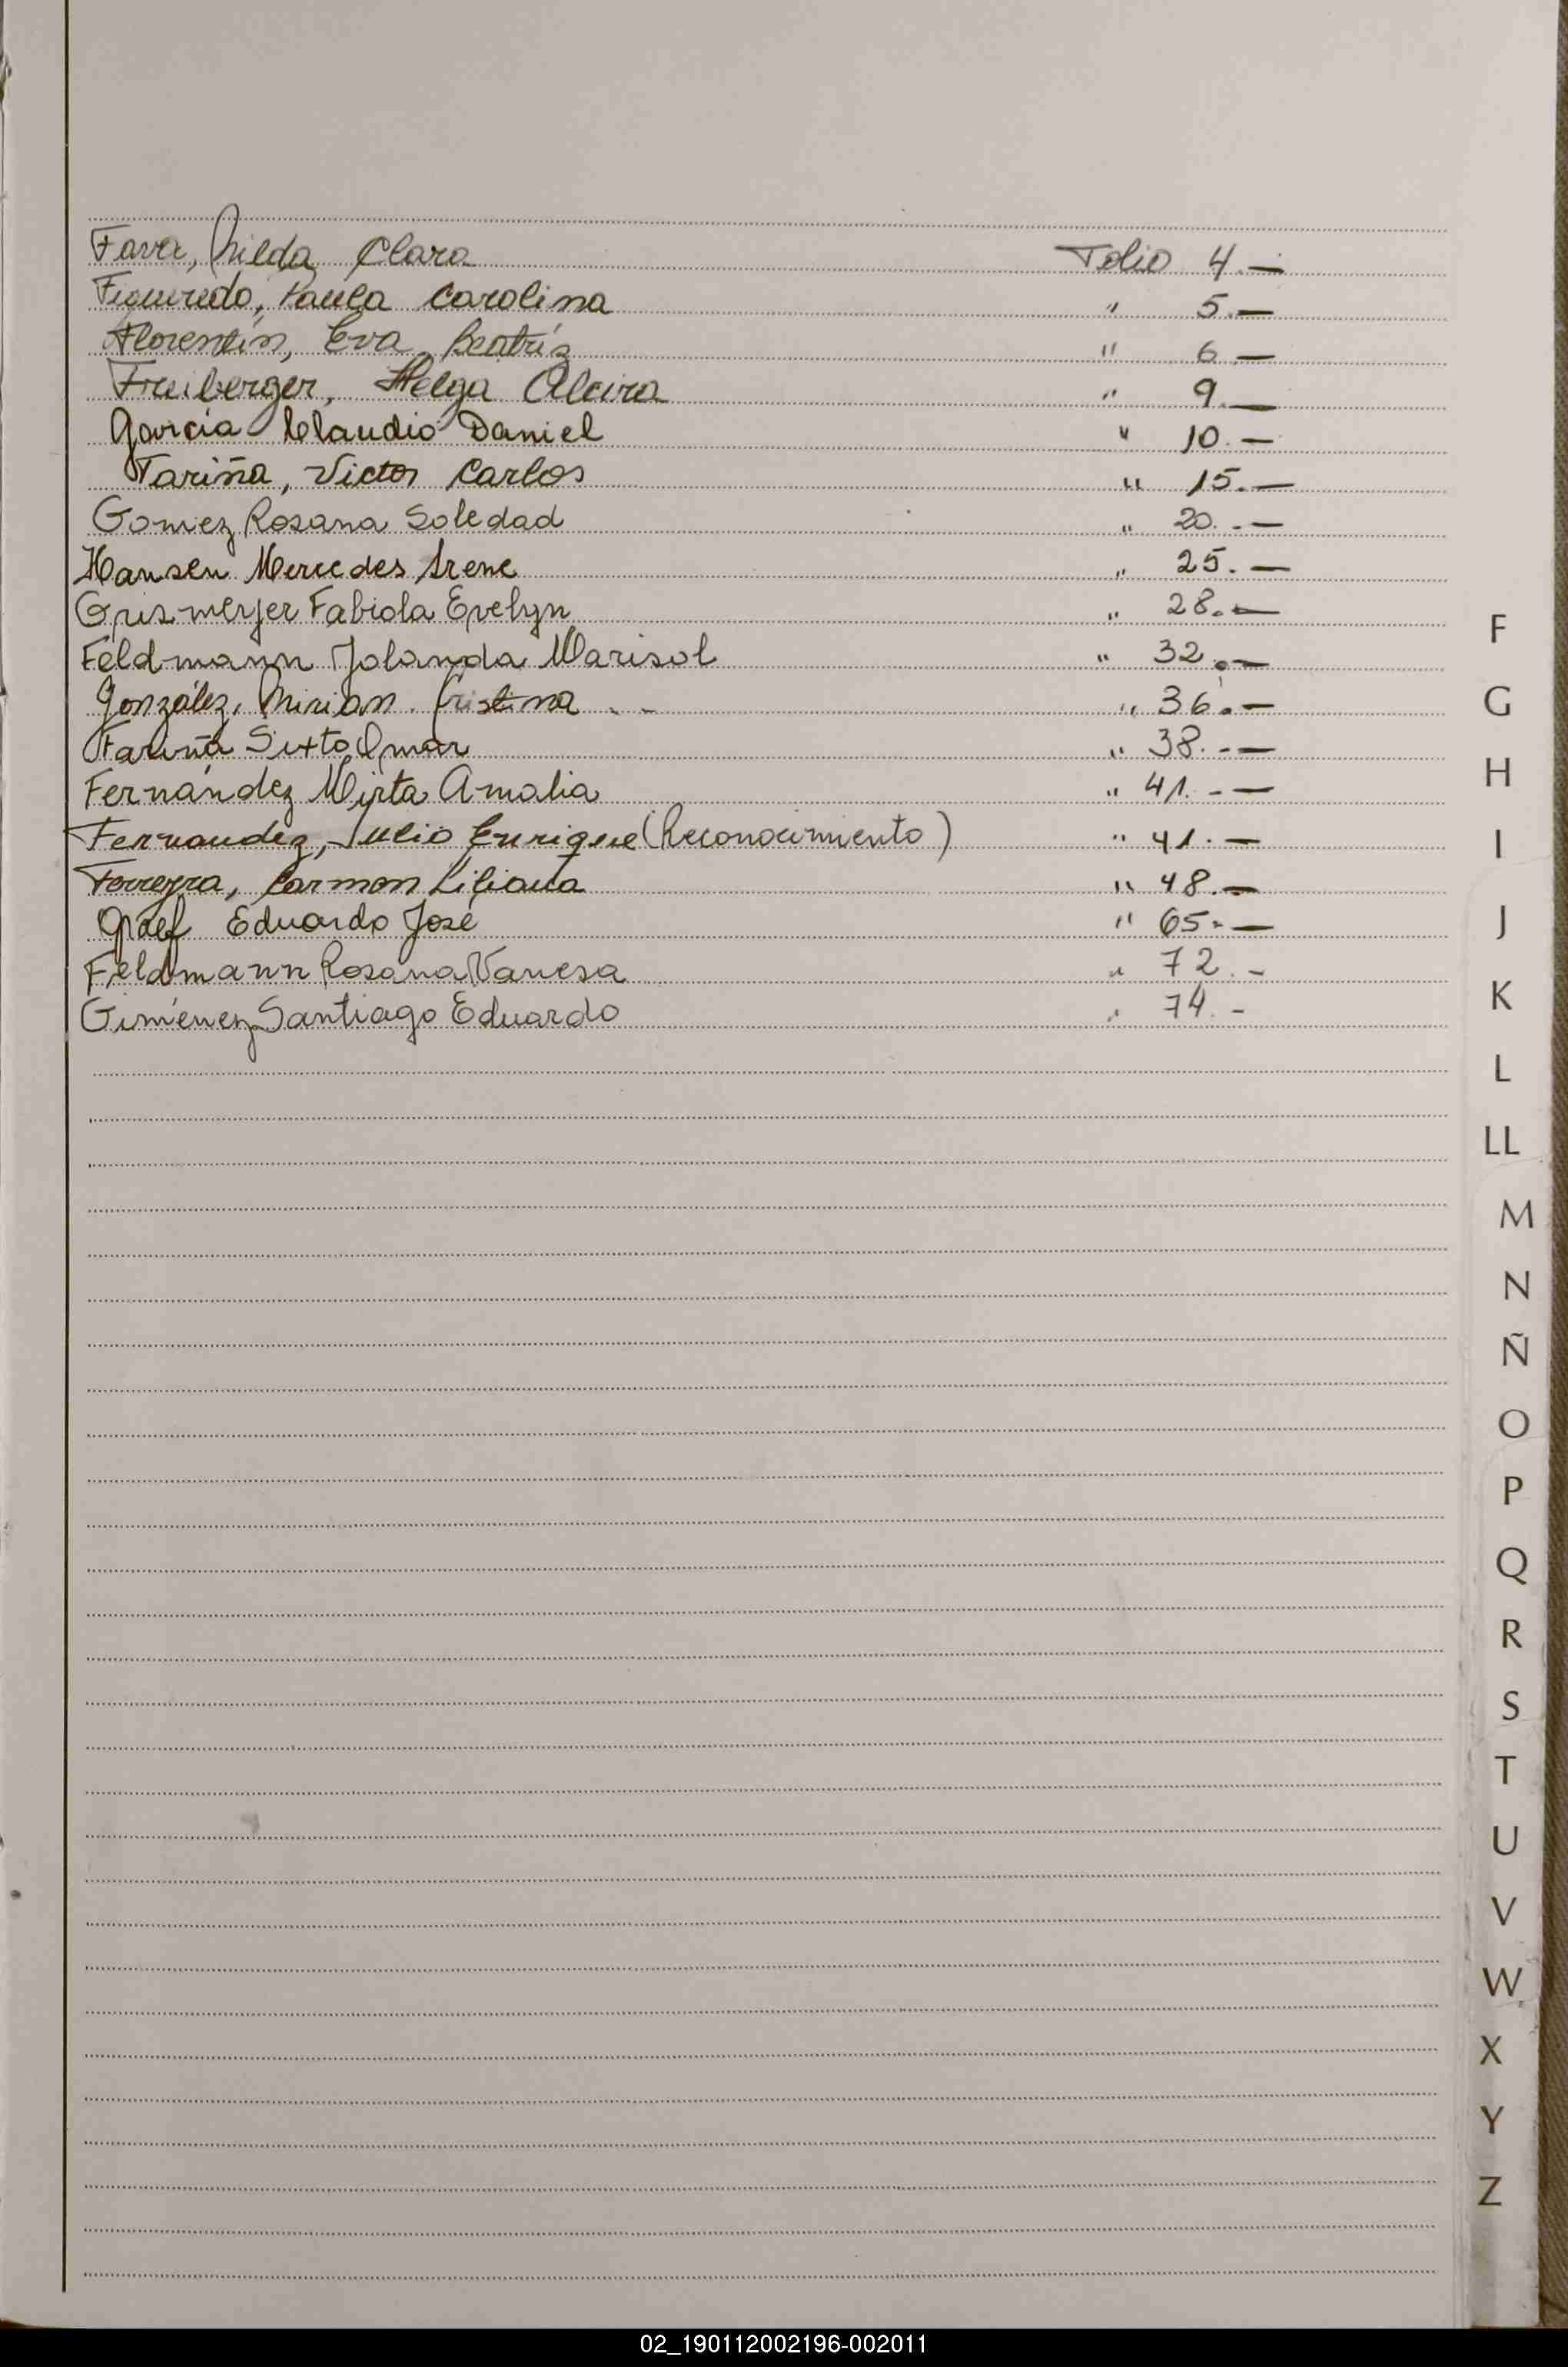 Fava, Nilda Clara Folio 4.—
Figueredo, Paula Carolina " 5.—
Florentín, Eva Beatríz " 6.—
Freiberger, Helga Alcira " 9.—
García Claudio Daniel " 10.—
Fariña, Victor Carlos " 15.—
Gomez Rosana Soledad " 20.-—
Hansen Mercedes Irene " 25.—
Grismeyer Fabiola Evelyn " 28.—
Feldmann Jolanda Marisol " 32.—
González, Mirian Cristina " 36.—
Fariña Sixto Omar " 38.-—
Fernández Mirta Amalia " 41.-—
Fernandez, Julio Enrique (Reconocimiento) " 41.—
Ferreyra, Carmen Liliana " 48.—
Graef Eduardo José " 65.—
Feldmann Rosana Vanesa " 72.-
Giménez Santiago Eduardo " 74.-
F
G
H
I
J
K
L
LL
M
N
Ñ
O
P
Q
R
S
T
U
V
W
X
Y
Z
02_190112002196-002011